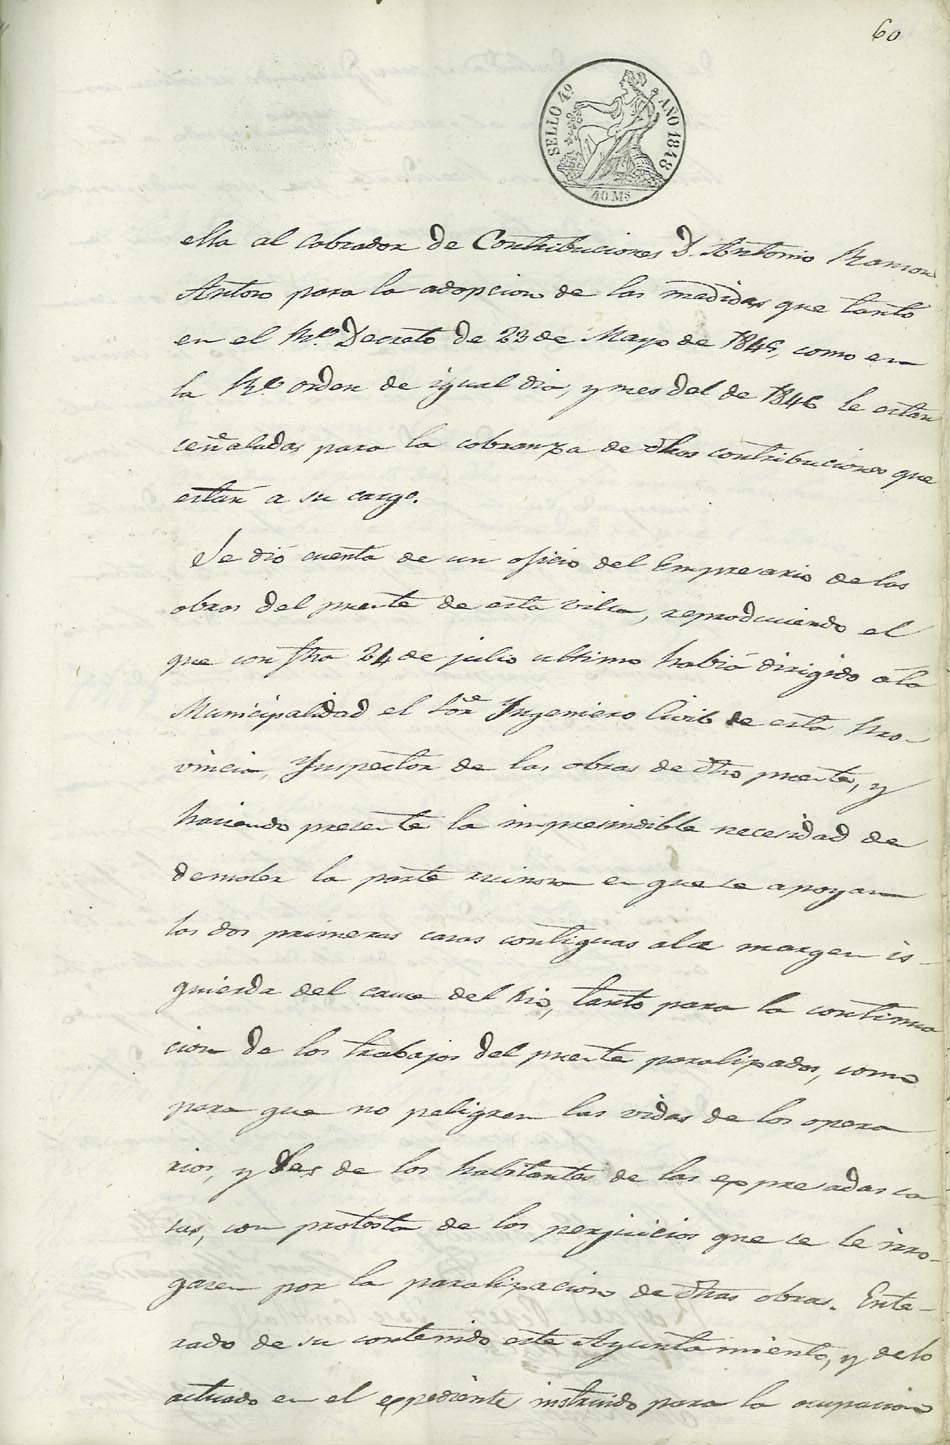 60
SELLO 4º AÑO 1848
40 Ms
ella al Cobrador de Contribuciones D. Antonio Ramon
Antoro para la adopcion de las madidas que tanto
en el Rl. Decreto de 23 de Mayo de 1845, como en
la Rl. orden de igual dia, y mes del de 1846 le estan
ceñaladas para la cobranza de dhas contribuciones que
estan a su cargo.
Se dió cuenta de un oficio del Empresario de las
obras del puente de esta villa, reproduciendo el
que con fha 24 de julio ultimo habia dirigido a la
Municipalidad el Sor. Ingeniero Civil de esta Pro-
vincia, Ynspector de las obras de dho puente, y
haciendo presente la impresindible necesidad de
demoler la parte ruinosa en que se apoyan
las dos primeras casas contiguas a la margen is-
quierda del cauce del Rio, tanto para la continua
cion de los trabajos del puente paralizados, como
para que no peligren las vidas de los opera
rios, y las de los habitantes de las expresadas ca
sas, con protesta de los perjuicios que se le irro-
garen por la paralizacion de dhas obras. Ente-
rado de su contenido este Ayuntamiento, y de lo
actuado en el expediente instruido para la ocupacion